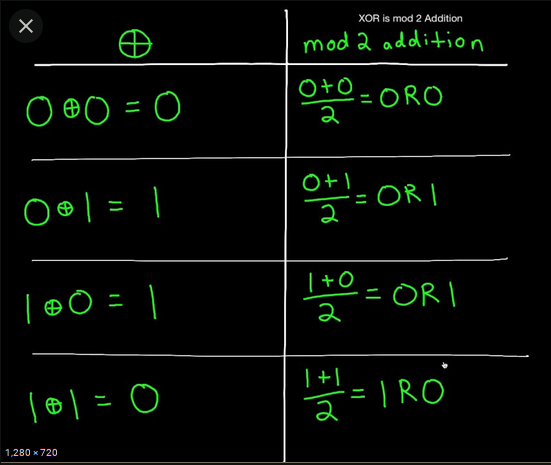 XOR is mod 2 Addition
⊕ mod 2 addition
0 ⊕ 0 = 0
0+0
2
= 0 R 0
0 ⊕ 1 = 1
0+1
2
= 0 R 1
1 ⊕ 0 = 1
1+0
2
= 0 R 1
1 ⊕ 1 = 0
1+1
2
= 1 R 0
1,280 × 720